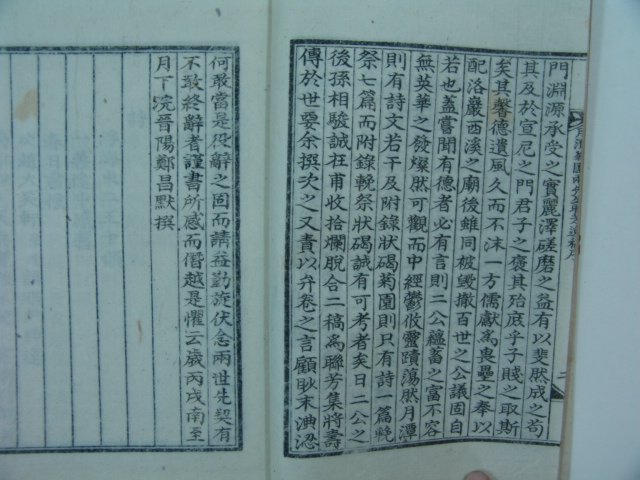 門淵源承受之實麗澤磋磨之益有以斐然成之苟
其及於宣尼之門君子之褒其殆底乎子賤之取斯
矣其馨德遺風久而不沫一方儒獻爲畏壘之奉以
配洛巖西溪之廟後雖同被毀撤百世之公議固自
若也蓋嘗聞有德者必有言則二公蘊蓄之富不容
無英華之發燦然可觀而中經鬱攸靈蹟蕩然月潭
則有詩文若干及附錄狀碣菊園則只有詩一篇輓
祭七篇而附錄輓祭狀碣誠有可考者矣日二公之
後孫相駿誠在甫收拾爛脫合二稿爲聯芳集將壽
傳於世要余撰次之又責以弁卷之言顧耿末淟涊
何敢當是役辭之固而請益勤旋伏念兩世先契有
不敢終辭者謹書所感而僭越是懼云歲丙戌南至
月下浣晉陽鄭昌默撰
二